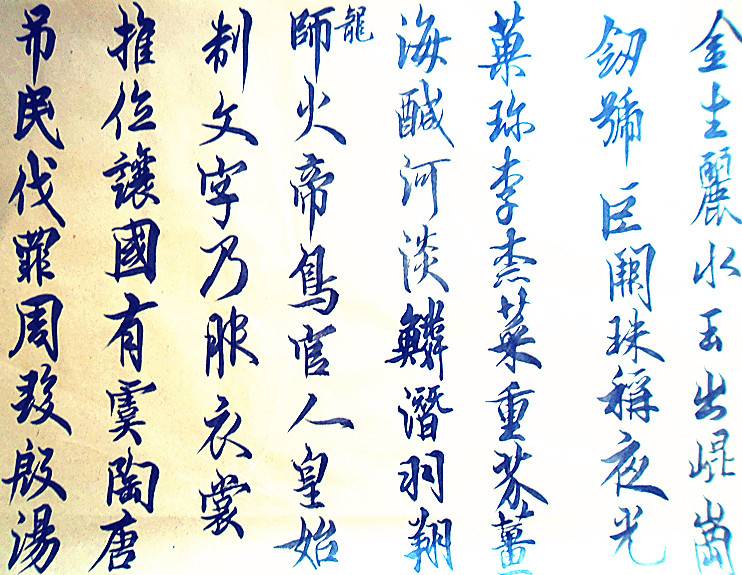 金生麗水玉出崐崗
劒號巨闕珠稱夜光
菓珍李柰菜重芥薑
海醎河淡鱗潛羽翔
龍師火帝鳥官人皇始
制文字乃服衣裳
推位讓國有虞陶唐
吊民伐罪周發殷湯